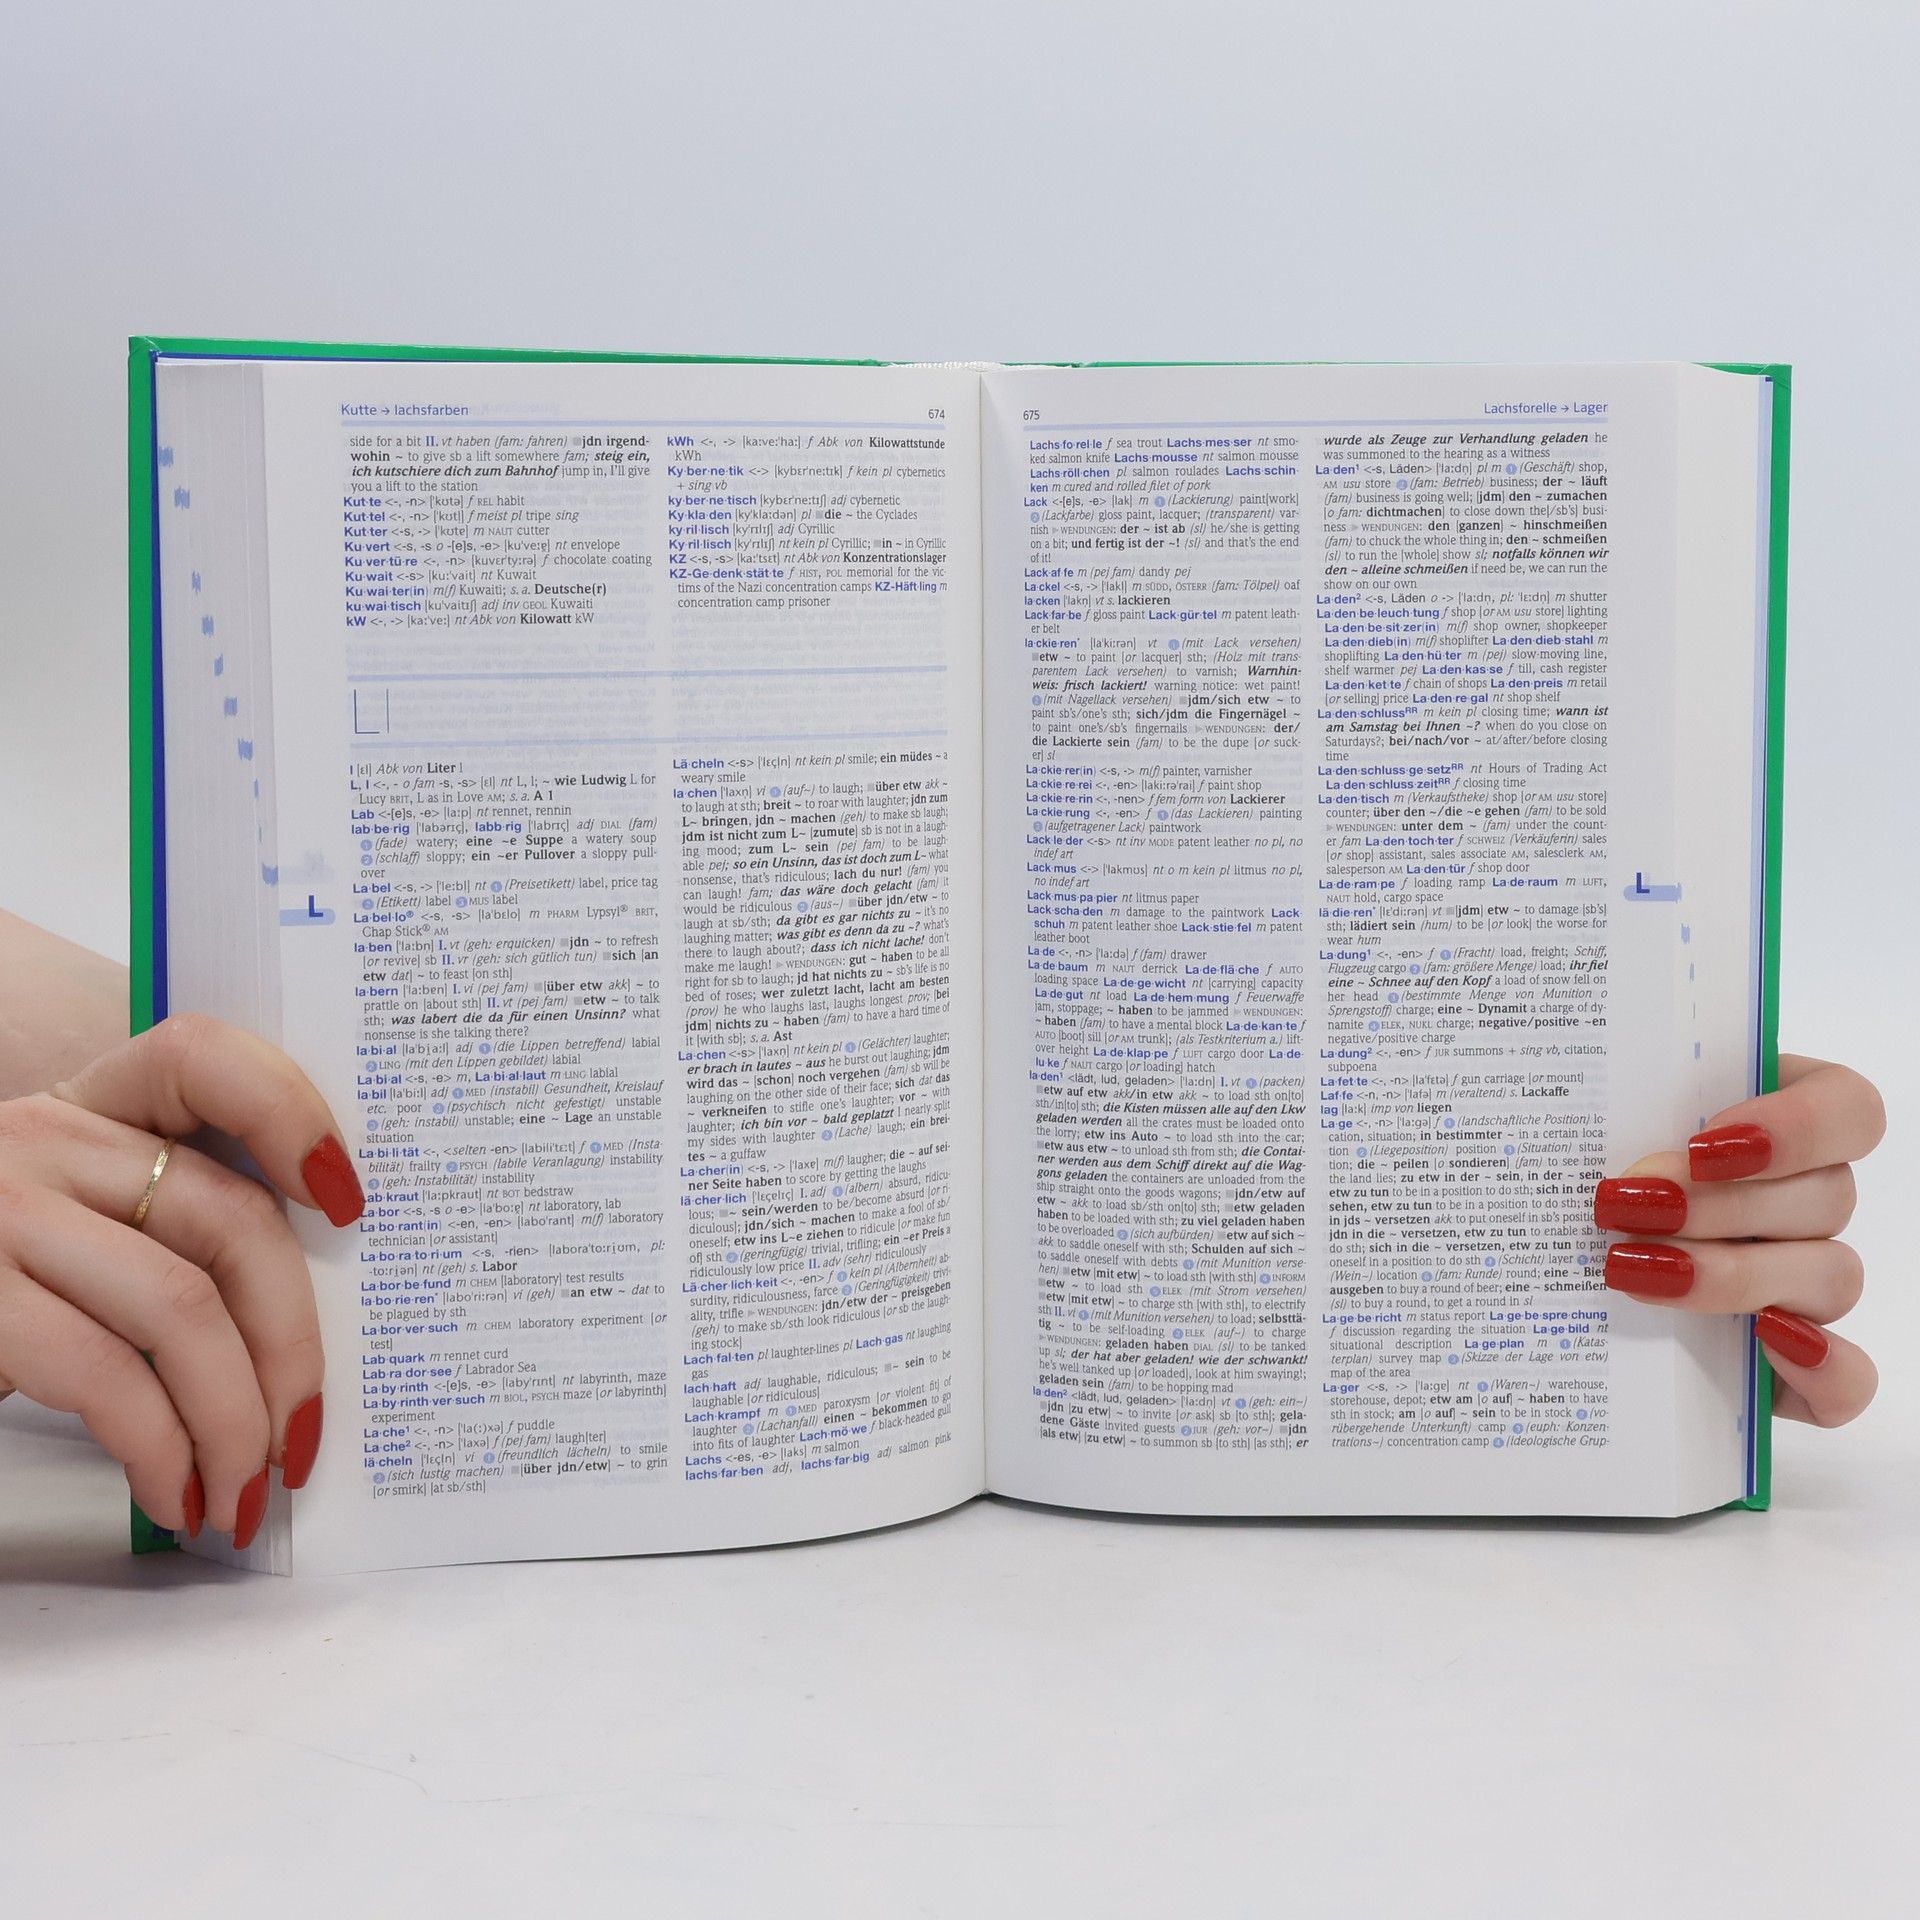 Kutte → lachsfarben
674
side for a bit II. vt haben (fam: fahren) ■jdn irgend-
wohin ~ to give sb a lift somewhere fam; steig ein,
ich kutschiere dich zum Bahnhof jump in, I'll give
you a lift to the station
Kut·te <-, -n> ['kʊtə] f REL habit
Kut·tel <-, -n> ['kʊtl̩] f meist pl tripe sing
Kut·ter <-s, -> ['kʊtɐ] m NAUT cutter
Ku·vert <-s, -s o -[e]s, -e> [ku'veːɐ̯] nt envelope
Ku·ver·tü·re <-, -n> [kuvɛr'tyːrə] f chocolate coating
Ku·wait <-s> [ku:'vait] nt Kuwait
Ku·wai·ter(in) m(f) Kuwaiti; s. a. Deutsche(r)
ku·wai·tisch [ku'vaitɪʃ] adj inv GEOL Kuwaiti
kW <-, -> [kaː'veː] nt Abk von Kilowatt kW
kWh <-, -> [kaːveː'haː] f Abk von Kilowattstunde
kWh
Ky·ber·ne·tik <-> [kybɛr'neːtɪk] f kein pl cybernetics
+ sing vb
ky·ber·ne·tisch [kybɛr'neːtɪʃ] adj cybernetic
Ky·kla·den [ky'klaːdən] pl ■die ~ the Cyclades
ky·ril·lisch [ky'rɪlɪʃ] adj Cyrillic
Ky·ril·lisch [ky'rɪlɪʃ] nt kein pl Cyrillic; ■in ~ in Cyrillic
KZ <-s, -s> [kaː'tsɛt] nt Abk von Konzentrationslager
KZ-Ge·denk·stät·te f HIST, POL memorial for the vic-
tims of the Nazi concentration camps KZ-Häft·ling m
concentration camp prisoner
L l
l [ɛl] Abk von Liter l
L, l <-, - o fam -s, -s> [ɛl] nt L, l; ~ wie Ludwig L for
Lucy BRIT, L as in Love AM; s. a. A 1
Lab <-[e]s, -e> [laːp] nt rennet, rennin
lab·be·rig ['labərɪç], labb·rig ['labrɪç] adj DIAL (fam)
① (fade) watery; eine ~e Suppe a watery soup
② (schlaff) sloppy; ein ~er Pullover a sloppy pull-
over
La·bel <-s, -> ['leːbl̩] nt ① (Preisetikett) label, price tag
② (Etikett) label ③ MUS label
La·bel·lo® <-s, -s> [la'bɛlo] m PHARM Lypsyl® BRIT,
Chap Stick® AM
la·ben ['laːbn̩] I. vt (geh: erquicken) ■jdn ~ to refresh
[or revive] sb II. vr (geh: sich gütlich tun) ■sich [an
etw dat] ~ to feast [on sth]
la·bern ['laːbɐn] I. vi (pej fam) ■[über etw akk] ~ to
prattle on [about sth] II. vt (pej fam) ■etw ~ to talk
sth; was labert die da für einen Unsinn? what
nonsense is she talking there?
la·bi·al [la'bi̯aːl] adj ① (die Lippen betreffend) labial
② LING (mit den Lippen gebildet) labial
La·bi·al <-s, -e> m, La·bi·al·laut m LING labial
la·bil [la'biːl] adj ① MED (instabil) Gesundheit, Kreislauf
etc. poor ② (psychisch nicht gefestigt) unstable
③ (geh: instabil) unstable; eine ~ Lage an unstable
situation
La·bi·li·tät <-, <selten -en> [labili'tɛːt] f ① MED (Insta-
bilität) frailty ② PSYCH (labile Veranlagung) instability
③ (geh: Instabilität) instability
Lab·kraut ['laːpkraut] nt BOT bedstraw
La·bor <-s, -s o -e> [la'boːɐ̯] nt laboratory, lab
La·bo·rant(in) <-en, -en> [labo'rant] m(f) laboratory
technician [or assistant]
La·bo·ra·to·ri·um <-s, -rien> [labora'toːri̯ʊm, pl:
-toːri̯ən] nt (geh) s. Labor
La·bor·be·fund m CHEM [laboratory] test results
la·bo·rie·ren* [labo'riːrən] vi (geh) ■an etw ~ dat to
be plagued by sth
La·bor·ver·such m CHEM laboratory experiment [or
test]
Lab·quark m rennet curd
Lab·ra·dor·see f Labrador Sea
La·by·rinth <-[e]s, -e> [laby'rɪnt] nt labyrinth, maze
La·by·rinth·ver·such m BIOL, PSYCH maze [or labyrinth]
experiment
La·che¹ <-, -n> ['la(ː)xə] f puddle
La·che² <-, -n> ['laxə] f (pej fam) laugh[ter]
lä·cheln ['lɛçl̩n] vi ① (freundlich lächeln) to smile
② (sich lustig machen) ■[über jdn/etw] ~ to grin
[or smirk] [at sb/sth]
Lä·cheln <-s> ['lɛçl̩n] nt kein pl smile; ein müdes ~ a
weary smile
la·chen ['laxn̩] vi ① (auf~) to laugh; ■über etw akk ~
to laugh at sth; breit ~ to roar with laughter; jdn zum
L~ bringen, jdn ~ machen (geh) to make sb laugh;
jdm ist nicht zum L~ [zumute] sb is not in a laugh-
ing mood; zum L~ sein (pej fam) to be laugh-
able pej; so ein Unsinn, das ist doch zum L~ what
nonsense, that's ridiculous; lach du nur! (fam) you
can laugh! fam; das wäre doch gelacht (fam) it
would be ridiculous ② (aus~) ■über jdn/etw ~ to
laugh at sb/sth; da gibt es gar nichts zu ~ it's no
laughing matter; was gibt es denn da zu ~? what's
there to laugh about?; dass ich nicht lache! don't
make me laugh! ▶WENDUNGEN: gut ~ haben to be all
right for sb to laugh; jd hat nichts zu ~ sb's life is no
bed of roses; wer zuletzt lacht, lacht am besten
(prov) he who laughs last, laughs longest prov; [bei
jdm] nichts zu ~ haben (fam) to have a hard time of
it [with sb]; s. a. Ast
La·chen <-s> ['laxn̩] nt kein pl ① (Gelächter) laughter;
er brach in lautes ~ aus he burst out laughing; jdm
wird das ~ [schon] noch vergehen (fam) sb will be
laughing on the other side of their face; sich dat das
~ verkneifen to stifle one's laughter; vor ~ with
laughter; ich bin vor ~ bald geplatzt I nearly split
my sides with laughter ② (Lache) laugh; ein brei-
tes ~ a guffaw
La·cher(in) <-s, -> ['laxɐ] m(f) laugher; die ~ auf sei-
ner Seite haben to score by getting the laughs
lä·cher·lich ['lɛçɐlɪç] I. adj ① (albern) absurd, ridicu-
lous; ■~ sein/werden to be/become absurd [or ri-
diculous]; jdn/sich ~ machen to make a fool of sb/
oneself; etw ins L~e ziehen to ridicule [or make fun
of] sth ② (geringfügig) trivial, trifling; ein ~er Preis a
ridiculously low price II. adv (sehr) ridiculously
Lä·cher·lich·keit <-, -en> f ① kein pl (Albernheit) ab-
surdity, ridiculousness, farce ② (Geringfügigkeit) trivi-
ality, trifle ▶WENDUNGEN: jdn/etw der ~ preisgeben
(geh) to make sb/sth look ridiculous [or sb the laugh-
ing stock]
Lach·fal·ten pl laughter-lines pl Lach·gas nt laughing
gas
lach·haft adj laughable, ridiculous; ■~ sein to be
laughable [or ridiculous]
Lach·krampf m ① MED paroxysm [or violent fit] of
laughter ② (Lachanfall) einen ~ bekommen to go
into fits of laughter Lach·mö·we f black-headed gull
Lachs <-es, -e> [laks] m salmon
lachs·far·ben adj, lachs·far·big adj salmon pink
L
675
Lachsforelle → Lager
Lachs·fo·rel·le f sea trout Lachs·mes·ser nt smo-
ked salmon knife Lachs·mousse nt salmon mousse
Lachs·röll·chen pl salmon roulades Lachs·schin-
ken m cured and rolled filet of pork
Lack <-[e]s, -e> [lak] m ① (Lackierung) paint[work]
② (Lackfarbe) gloss paint, lacquer; (transparent) var-
nish ▶WENDUNGEN: der ~ ist ab (sl) he/she is getting
on a bit; und fertig ist der ~! (sl) and that's the end
of it!
Lack·af·fe m (pej fam) dandy pej
La·ckel <-s, -> ['lakl̩] m SÜDD, ÖSTERR (fam: Tölpel) oaf
la·cken ['lakn̩] vt s. lackieren
Lack·far·be f gloss paint Lack·gür·tel m patent leath-
er belt
la·ckie·ren* [la'kiːrən] vt ① (mit Lack versehen)
■etw ~ to paint [or lacquer] sth; (Holz mit trans-
parentem Lack versehen) to varnish; Warnhin-
weis: frisch lackiert! warning notice: wet paint!
② (mit Nagellack versehen) ■jdm/sich etw ~ to
paint sb's/one's sth; sich/jdm die Fingernägel ~
to paint one's/sb's fingernails ▶WENDUNGEN: der/
die Lackierte sein (fam) to be the dupe [or suck-
er] sl
La·ckie·rer(in) <-s, -> m(f) painter, varnisher
La·ckie·re·rei <-, -en> [lakiːrə'rai] f paint shop
La·ckie·re·rin <-, -nen> f fem form von Lackierer
La·ckie·rung <-, -en> f ① (das Lackieren) painting
② (aufgetragener Lack) paintwork
Lack·le·der <-s> nt inv MODE patent leather no pl, no
indef art
Lack·mus <-> ['lakmʊs] nt o m kein pl litmus no pl,
no indef art
Lack·mus·pa·pier nt litmus paper
Lack·scha·den m damage to the paintwork Lack-
schuh m patent leather shoe Lack·stie·fel m patent
leather boot
La·de <-, -n> ['laːdə] f (fam) drawer
La·de·baum m NAUT derrick La·de·flä·che f AUTO
loading space La·de·ge·wicht nt [carrying] capacity
La·de·gut nt load La·de·hem·mung f Feuerwaffe
jam, stoppage; ~ haben to be jammed ▶WENDUNGEN:
~ haben (fam) to have a mental block La·de·kan·te f
AUTO [boot] sill [or AM trunk]; (als Testkriterium a.) lift-
over height La·de·klap·pe f LUFT cargo door La·de-
lu·ke f NAUT cargo [or loading] hatch
la·den¹ <lädt, lud, geladen> ['laːdn̩] I. vt ① (packen)
■etw auf etw akk/in etw akk ~ to load sth on[to]
sth/in[to] sth; die Kisten müssen alle auf den Lkw
geladen werden all the crates must be loaded onto
the lorry; etw ins Auto ~ to load sth into the car;
■etw aus etw ~ to unload sth from sth; die Contai-
ner werden aus dem Schiff direkt auf die Wag-
gons geladen the containers are unloaded from the
ship straight onto the goods wagons; ■jdn/etw auf
etw ~ akk to load sb/sth on[to] sth; ■etw geladen
haben to be loaded with sth; zu viel geladen haben
to be overloaded ② (sich aufbürden) ■etw auf sich ~
akk to saddle oneself with sth; Schulden auf sich ~
to saddle oneself with debts ③ (mit Munition verse-
hen) ■etw [mit etw] ~ to load sth [with sth] ④ INFORM
■etw ~ to load sth ⑤ ELEK (mit Strom versehen)
■etw [mit etw] ~ to charge sth [with sth], to electrify
sth II. vi ① (mit Munition versehen) to load; selbsttä-
tig ~ to be self-loading ② ELEK (auf~) to charge
▶WENDUNGEN: geladen haben DIAL (sl) to be tanked
up sl; der hat aber geladen! wie der schwankt!
he's well tanked up [or loaded], look at him swaying!;
geladen sein (fam) to be hopping mad
la·den² <lädt, lud, geladen> ['laːdn̩] vt ① (geh: ein~)
■jdn [zu etw] ~ to invite [or ask] sb [to sth]; gela-
dene Gäste invited guests ② JUR (geh: vor~) ■jdn
[als etw] [zu etw] ~ to summon sb [to sth] [as sth]; er
wurde als Zeuge zur Verhandlung geladen he
was summoned to the hearing as a witness
La·den¹ <-s, Läden> ['laːdn̩] pl m ① (Geschäft) shop,
AM usu store ② (fam: Betrieb) business; der ~ läuft
(fam) business is going well; [jdm] den ~ zumachen
[o fam: dichtmachen] to close down the[/sb's] busi-
ness ▶WENDUNGEN: den [ganzen] ~ hinschmeißen
(fam) to chuck the whole thing in; den ~ schmeißen
(sl) to run the [whole] show sl; notfalls können wir
den ~ alleine schmeißen if need be, we can run the
show on our own
La·den² <-s, Läden o -> ['laːdn̩, pl: 'lɛːdn̩] m shutter
La·den·be·leuch·tung f shop [or AM usu store] lighting
La·den·be·sit·zer(in) m(f) shop owner, shopkeeper
La·den·dieb(in) m(f) shoplifter La·den·dieb·stahl m
shoplifting La·den·hü·ter m (pej) slow-moving line,
shelf warmer pej La·den·kas·se f till, cash register
La·den·ket·te f chain of shops La·den·preis m retail
[or selling] price La·den·re·gal nt shop shelf
La·den·schlussᴿᴿ m kein pl closing time; wann ist
am Samstag bei Ihnen ~? when do you close on
Saturdays?; bei/nach/vor ~ at/after/before closing
time
La·den·schluss·ge·setzᴿᴿ nt Hours of Trading Act
La·den·schluss·zeitᴿᴿ f closing time
La·den·tisch m (Verkaufstheke) shop [or AM usu store]
counter; über den ~/die ~e gehen (fam) to be sold
▶WENDUNGEN: unter dem ~ (fam) under the count-
er fam La·den·toch·ter f SCHWEIZ (Verkäuferin) sales
[or shop] assistant, sales associate AM, salesclerk AM,
salesperson AM La·den·tür f shop door
La·de·ram·pe f loading ramp La·de·raum m LUFT,
NAUT hold, cargo space
lä·die·ren* [lɛ'diːrən] vt ■[jdm] etw ~ to damage [sb's]
sth; lädiert sein (hum) to be [or look] the worse for
wear hum
La·dung¹ <-, -en> f ① (Fracht) load, freight; Schiff,
Flugzeug cargo ② (fam: größere Menge) load; ihr fiel
eine ~ Schnee auf den Kopf a load of snow fell on
her head ③ (bestimmte Menge von Munition o
Sprengstoff) charge; eine ~ Dynamit a charge of dy-
namite ④ ELEK, NUKL charge; negative/positive ~en
negative/positive charge
La·dung² <-, -en> f JUR summons + sing vb, citation,
subpoena
La·fet·te <-, -n> [la'fɛtə] f gun carriage [or mount]
Laf·fe <-n, -n> ['lafə] m (veraltend) s. Lackaffe
lag [laːk] imp von liegen
La·ge <-, -n> ['laːgə] f ① (landschaftliche Position) lo-
cation, situation; in bestimmter ~ in a certain loca-
tion ② (Liegeposition) position ③ (Situation) situa-
tion; die ~ peilen [o sondieren] (fam) to see how
the land lies; zu etw in der ~ sein, in der ~ sein,
etw zu tun to be in a position to do sth; sich in der
sehen, etw zu tun to be in a position to do sth;
in jds ~ versetzen akk to put oneself in sb's
jdn in die ~ versetzen, etw zu tun to enable sb to
do sth; sich in die ~ versetzen, etw zu tun to put
oneself in a position to do sth ④ (Schicht) layer ⑤ AGR
(Wein~) location ⑥ (fam: Runde) round; eine ~ Bier
ausgeben to buy a round of beer; eine ~ schmeißen
(sl) to buy a round, to get a round in sl
La·ge·be·richt m status report La·ge·be·spre·chung
f discussion regarding the situation La·ge·bild nt
situational description La·ge·plan m ① (Katas-
terplan) survey map ② (Skizze der Lage von etw)
map of the area
La·ger <-s, -> ['laːgɐ] nt ① (Waren~) warehouse,
storehouse, depot; etw am [o auf] ~ haben to have
sth in stock; am [o auf] ~ sein to be in stock ② (vo-
rübergehende Unterkunft) camp ③ (euph: Konzen-
trations~) concentration camp ④ (ideologische Grup-
L